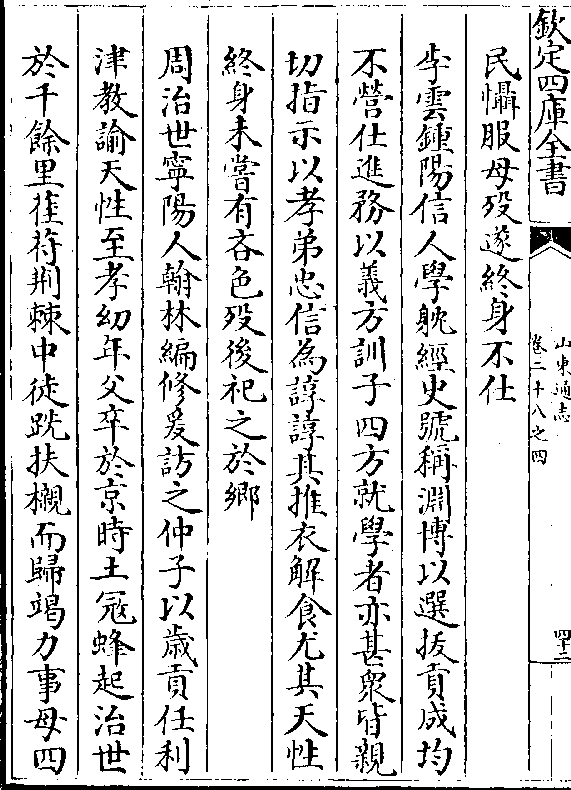 欽定四庫全書
山東通志
卷二十八之四
四十二
民懾服母殁遂終身不仕
李雲鍾陽信人學躭經史號稱淵博以選拔貢成均
不營仕進務以義方訓子四方就學者亦甚衆皆親
切指示以孝弟忠信為諄諄其推衣解食尤其天性
終身未嘗有吝色殁後祀之於鄉
周治世寧陽人翰林編修爰訪之仲子以歲貢任利
津教諭天性至孝幼年父卒於京時土冦蜂起治世
於千餘里萑苻荆棘中徒跣扶櫬而歸竭力事母四